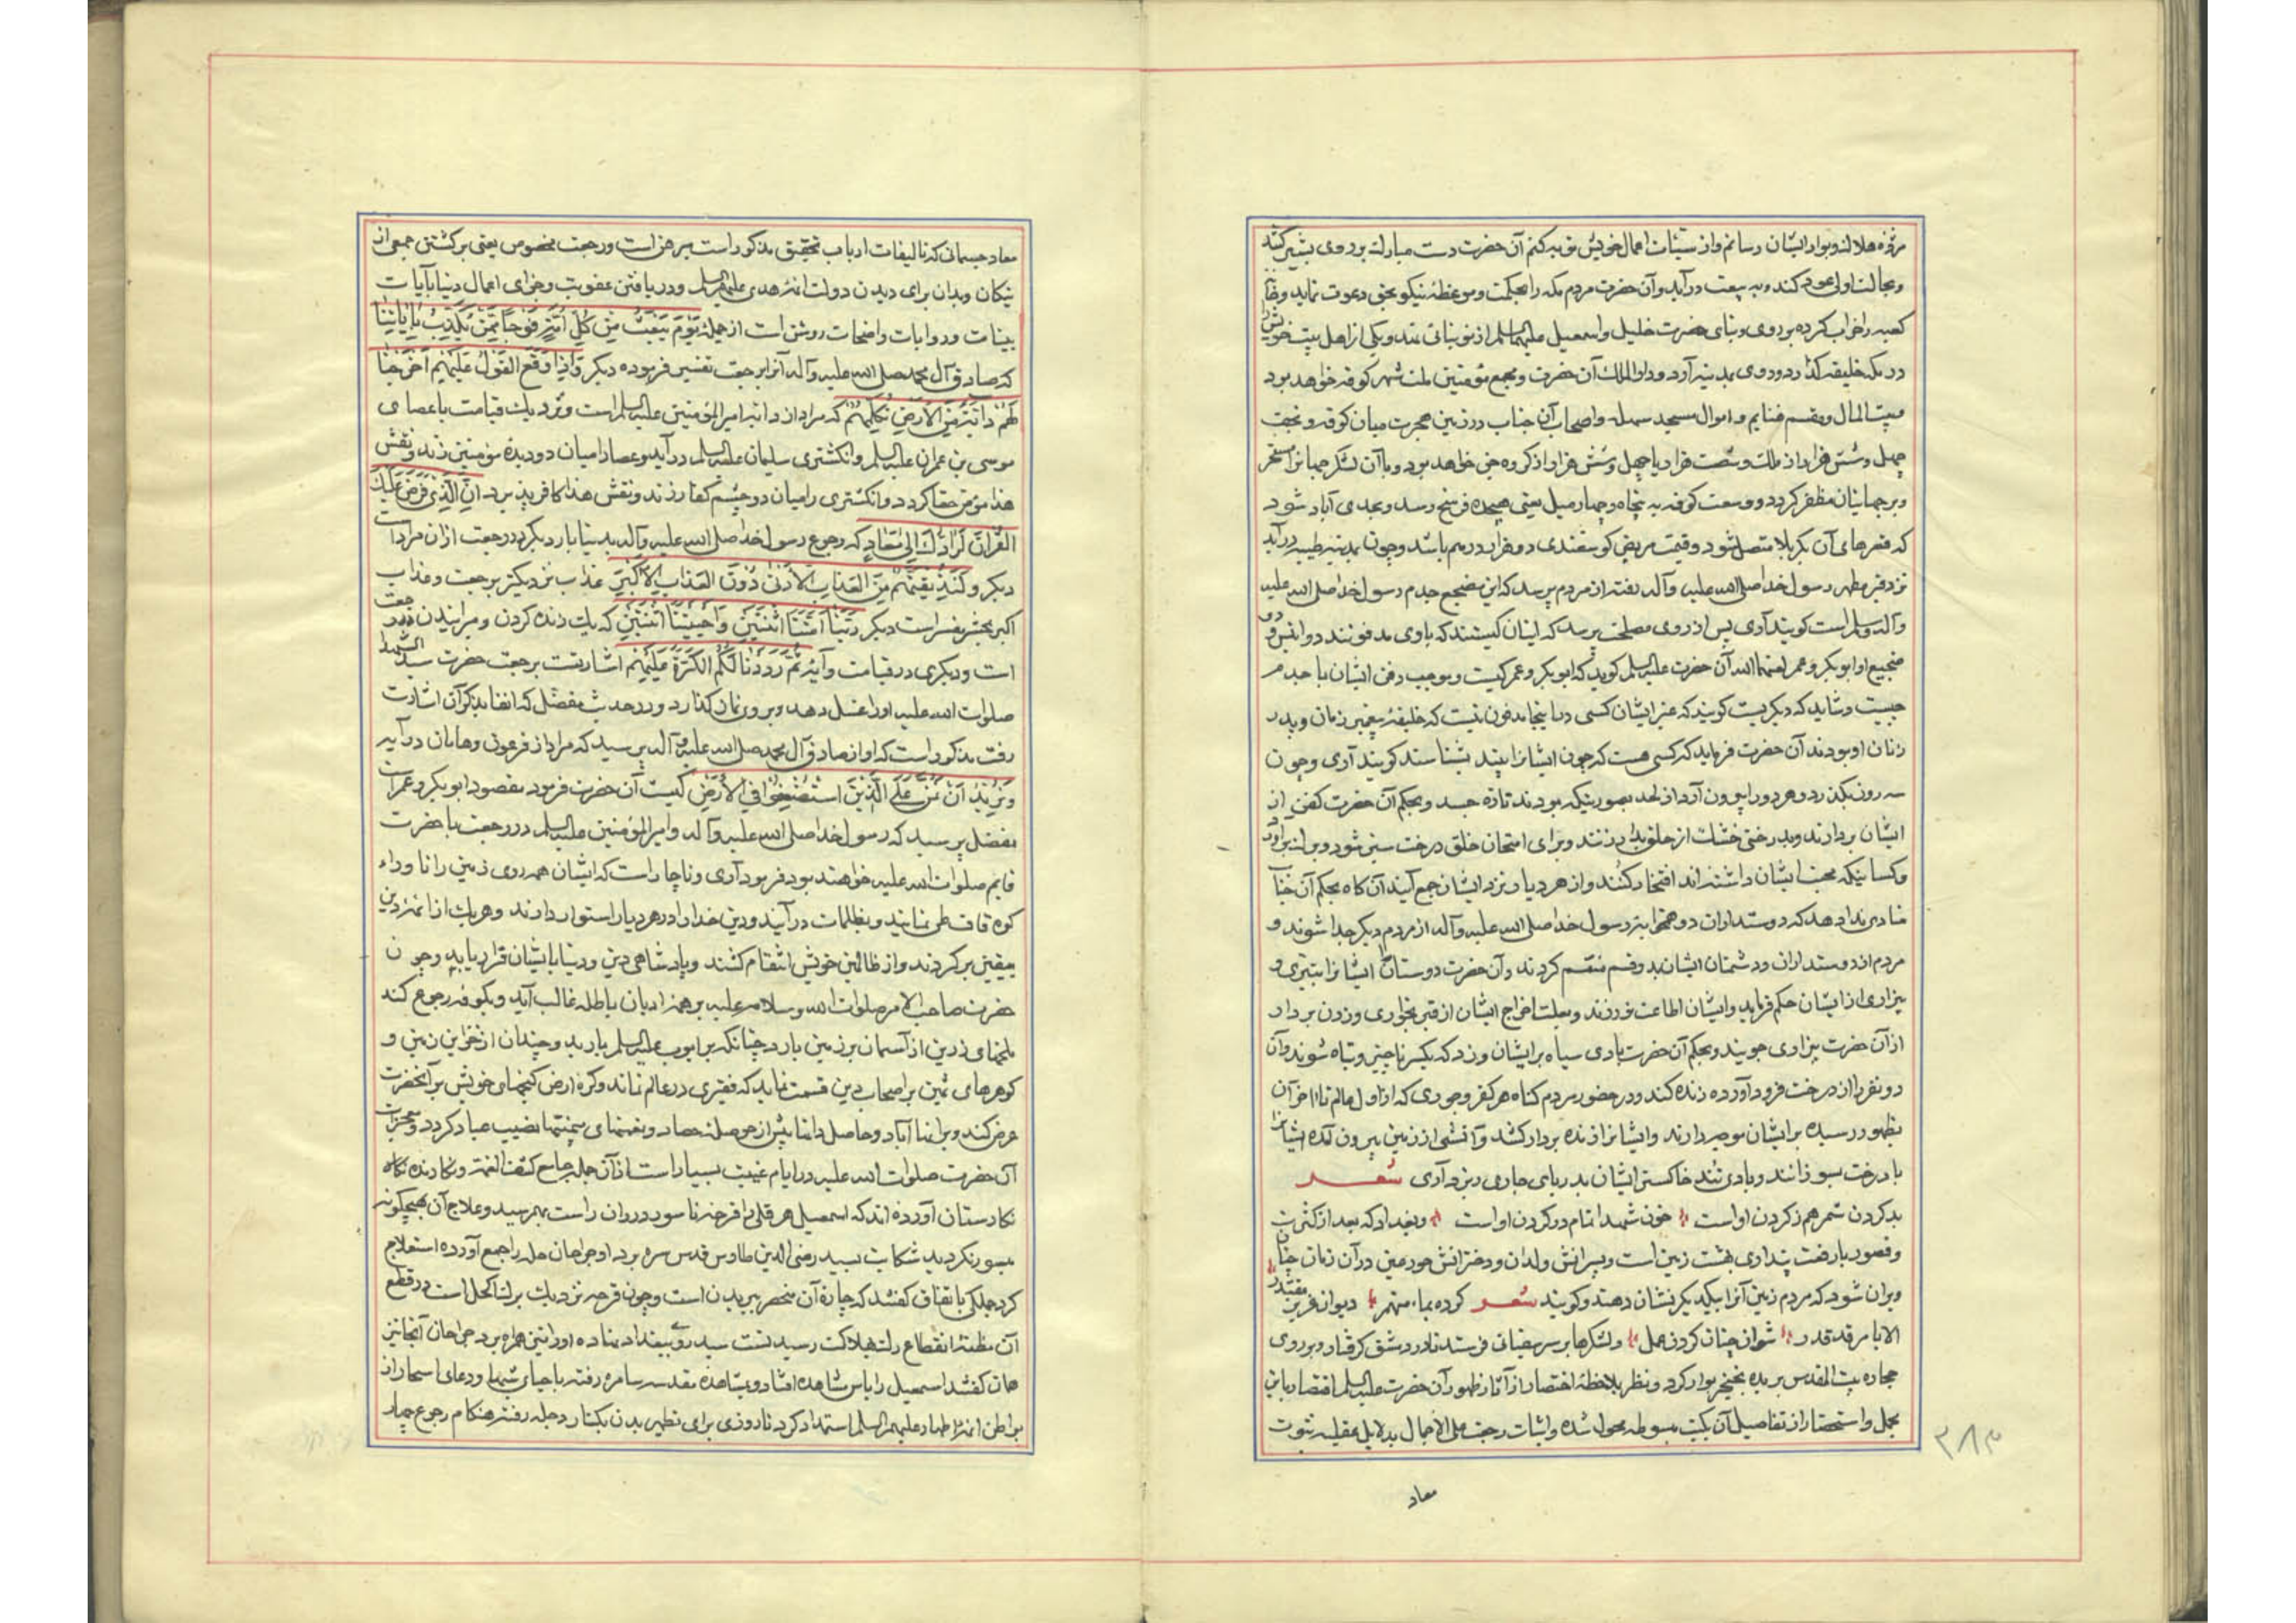 مژده هلاک و بوار ایشان رسانم و از سیئات اعمال خویش توبه کنم آن حضرت دست مبارک بر روی بشیر کشد
و بحالت اول عود کند و به بیعت درآید و آن حضرت مردم مکه را بحکمت و موعظه نیکو بحق دعوت نماید و خانه
کعبه را خراب کرده بر وی و بنای حضرت خلیل و اسمعیل علیهما السلم از نو بنائی نهد و یکی از اهل بیت خویش را
در مکه خلیفه گذارد و روی بمدینه آرد و دار الملک آن حضرت و مجمع مؤمنین ملت شهر کوفه خواهد بود
و بیت المال و مقسم غنایم و اموال مسجد سهله و اصحاب آن جناب در زمین هجرت میان کوفه و نجف
چهل و شش هزار از ملک و شصت هزار یا چهل و شش هزار از گروه جن خواهد بود و با آن لشکر جهانرا مسخر
و بر جهانیان مظفر گردد و وسعت کوفه به پنجاه و چهار میل یعنی هیجده فرسخ رسد و بحدی آباد شود
که قصرهای آن بکربلا متصل شود و قیمت مربض گوسفندی دو هزار درهم باشد و چون بمدینه طیبه درآید
نزد قبر مطهر رسول خدا صلی الله علیه و آله رفته از مردم پرسد که این مضجع جدم رسول خدا صلی الله علیه
و آله و سلم است گویند آری پس از روی مصلحت پرسد که اینان کیستند که با وی مدفونند
ضجیع او ابوبکر و عمر لعنهما الله آن حضرت علیه السلم گوید که ابوبکر و عمر کیست و موجب دفن ایشان با جدم
چیست و شاید که دیگریست گویند که غیر ایشان کسی در اینجا مدفون نیست که خلیفه پیغمبر زمان و پدر
زنان او بودند آن حضرت فرماید که کسی هست که چون ایشانرا بیند بشناسد گویند آری و چون
سه روز بگذرد و هر دو را بیرون آرد از لحد بصورتیکه بودند تازه جسد و بحکم آن حضرت کفن از
ایشان بردارند و بدرختی خشک از حلق بدار زنند و برای امتحان خلق درخت سبز شود و برگ برآورد
و کسانیکه محبت ایشان داشته اند افتخار کنند و از هر دیار نزد ایشان جمع آیند آن گاه بحکم آن جناب
منادی ندا دهد که دوستداران دو همخوابه رسول خدا صلی الله علیه و آله از مردم دیگر جدا شوند و
مردم از دوستداران و دشمنان ایشان بدو قسم منقسم گردند و آن حضرت دوستان ایشانرا بتبری و
بیزاری از ایشان حکم فرماید و ایشان اطاعت نورزند و بعلت اخراج ایشان از قبر بخواری و زدن بر دار
از آن حضرت بیزاری جویند و بحکم آن حضرت بادی سیاه بر ایشان وزد که یکسر ناچیز و تباه شوند و آن
دو نفر را از درخت فرود آورده زنده کند و در حضور مردم گناه هر کفر و جوری که از اول عالم تا آخر آن
بظهور رسیده بر ایشان موجه دارند و ایشانرا زنده بر دار کشد و آتشی از زمین بیرون آمده ایشانرا
با درخت بسوزانند و بادی تند خاکستر ایشان بدریای جاری ریزد آری شعـر
بد کردن شمر هم ز کردن او است خون شهدا تمام در گردن او است و بغداد که بعد از کثرت
و قصور بار رفعت پنداری بهشت زمین است و پسرانش ولدان و دخترانش حور عین در آن زمان چنان
ویران شود که مردم زمین آنرا بیکدیگر نشان دهند و گویند شعـر
الایام قد قدر نتوان چنان کردن عمل و لشکرها بر سر سفیانی فرستد تا در دمشق گرفتار و بر روی
حجاره بیت المقدس بریده بخنجر بوار گردد و نظر بملاحظه اختصار از آثار ظهور آن حضرت علیه السلم اقتصار باین
مجمل و استحضار از تفاصیل آن بکتب مبسوطه محول شده و اثبات رجعت علی الاجمال بدلایل عقلیه ثبوت
معاد
۳۸۳
معاد جسمانی که تالیفات ارباب تحقیق مذکور است مبرهن است و رجعت مخصوص یعنی برگشتن جمعی از
نیکان و بدان برای دیدن دولت ائمه هدی علیهم السلم و دریافتن عقوبت و جزای اعمال دنیا بآیات
بینات و روایات واضحات روشن است از جمله یَوْمَ یَبْعَثُ مِنْ کُلِّ اُمَّةٍ فَوْجًا مِمَّنْ یُکَذِّبُ بِآیاتِنا
که صادق آل محمد صلی الله علیه و آله آنرا برجعت تفسیر فرموده دیگر وَاِذا وَقَعَ الْقَوْلُ عَلَیْهِمْ اَخْرَجْنا
لَهُمْ دابَّةً مِنَ الْاَرْضِ تُکَلِّمُهُمْ که مراد از دابه امیر المؤمنین علیه السلم است و نزدیک قیامت با عصای
موسی بن عمران علیه السلم و انگشتری سلیمان علیه السلم درآید و عصا را میان دو دیده مؤمنین زند و نقش
هذا مؤمن حقا گردد و انگشتری را میان دو چشم کفار زند و نقش هذا کافر پذیرد اِنَّ الَّذی فَرَضَ عَلَیْکَ
الْقُرْانَ لَرادُّکَ اِلی مَعادٍ که رجوع رسول خدا صلی الله علیه و آله بدنیا بار دیگر در رجعت از آن مراد است
دیگر وَلَنُذیقَنَّهُمْ مِنَ الْعَذابِ الْاَدْنی دُونَ الْعَذابِ الْاَکْبَرِ عذاب نزدیکتر برجعت و عذاب
اکبر بحشر مفسر است دیگر رَبَّنا اَمَتَّنا اثْنَتَیْنِ وَاَحْیَیْتَنا اثْنَتَیْنِ که یک زنده کردن و میرانیدن در رجعت
است و دیگری در قیامت و آیه ثُمَّ رَدَدْنا لَکُمُ الْکَرَّةَ عَلَیْهِمْ اشارتست برجعت حضرت سید الشهدا
صلوات الله علیه اورا غسل دهد و بر وی نماز گذارد و در حدیث مفضل که انفا بذکر آن اشارت
رفت مذکور است که او از صادق آل محمد صلی الله علیه و آله پرسید که مراد از فرعون و هامان در آیه
وَنُریدُ اَنْ نَمُنَّ عَلَی الَّذینَ اسْتُضْعِفُوا فِی الْاَرْضِ کیست آن حضرت فرمود مقصود ابوبکر و عمر است
مفضل پرسید که رسول خدا صلی الله علیه و آله و امیر المؤمنین علیه السلم در رجعت با حضرت
قایم صلوات الله علیه خواهند بود فرمود آری و ناچار است که ایشان همه روی زمین را تا وراء
کوه قاف طی نمایند و بظلمات درآیند و دین خدا را در هر دیار استوار دارند و هر یک از ائمه دین
بیقین برگردند و از ظالمین خویش انتقام کشند و پادشاهی دین و دنیا بایشان قرار یابد و چون
حضرت صاحب الامر صلوات الله و سلامه علیه بر همه ادیان باطله غالب آید و بکوفه رجوع کند
ملخهای زرین از آسمان بر زمین بارد چنانکه بر ایوب علیه السلم بارید و چندان از خزاین زمین و
گوهرهای ثمین بر اصحاب دین قسمت نماید که فقیری در عالم نماند و کره ارض گنجهای خویش بر آنحضرت
عرض کند و ویرانها آباد و حاصل دانها بیش از حوصله حصاد و نعمتهای بیمنتها نصیب عباد گردد و معجزات
آن حضرت صلوات الله علیه در ایام غیبت بسیار است از آن جمله جامع کشف الغمة و نگارنده نگاه
نگارستان آورده اند که اسمعیل هرقلی را قرحه ناسور در ران راست بهمرسید و علاج آن بهیچگونه
میسور نگردید شکایت بسید رضی الدین طاوس قدس سره برد او جراحان حله را جمع آورده استعلاج
کرد جملگی باتفاق گفتند که چاره آن منحصر ببریدن است و چون قرحه نزدیک برگ اکحل است در قطع
آن مظنه انقطاع رگ هلاکت رسیدنست سید روی ببغداد نهاده او را نیز همراه برد جراحان آنجا نیز
همان گفتند اسمعیل را یاس شاهده افتاد و بمشاهده مقدسه سامره رفته باحیای شبها و دعای اسحار از
بواطن ائمه اطهار علیهم السلم استمداد کرد تا روزی برای تطهیر بدن بکنار دجله رفته هنگام رجوع چهار